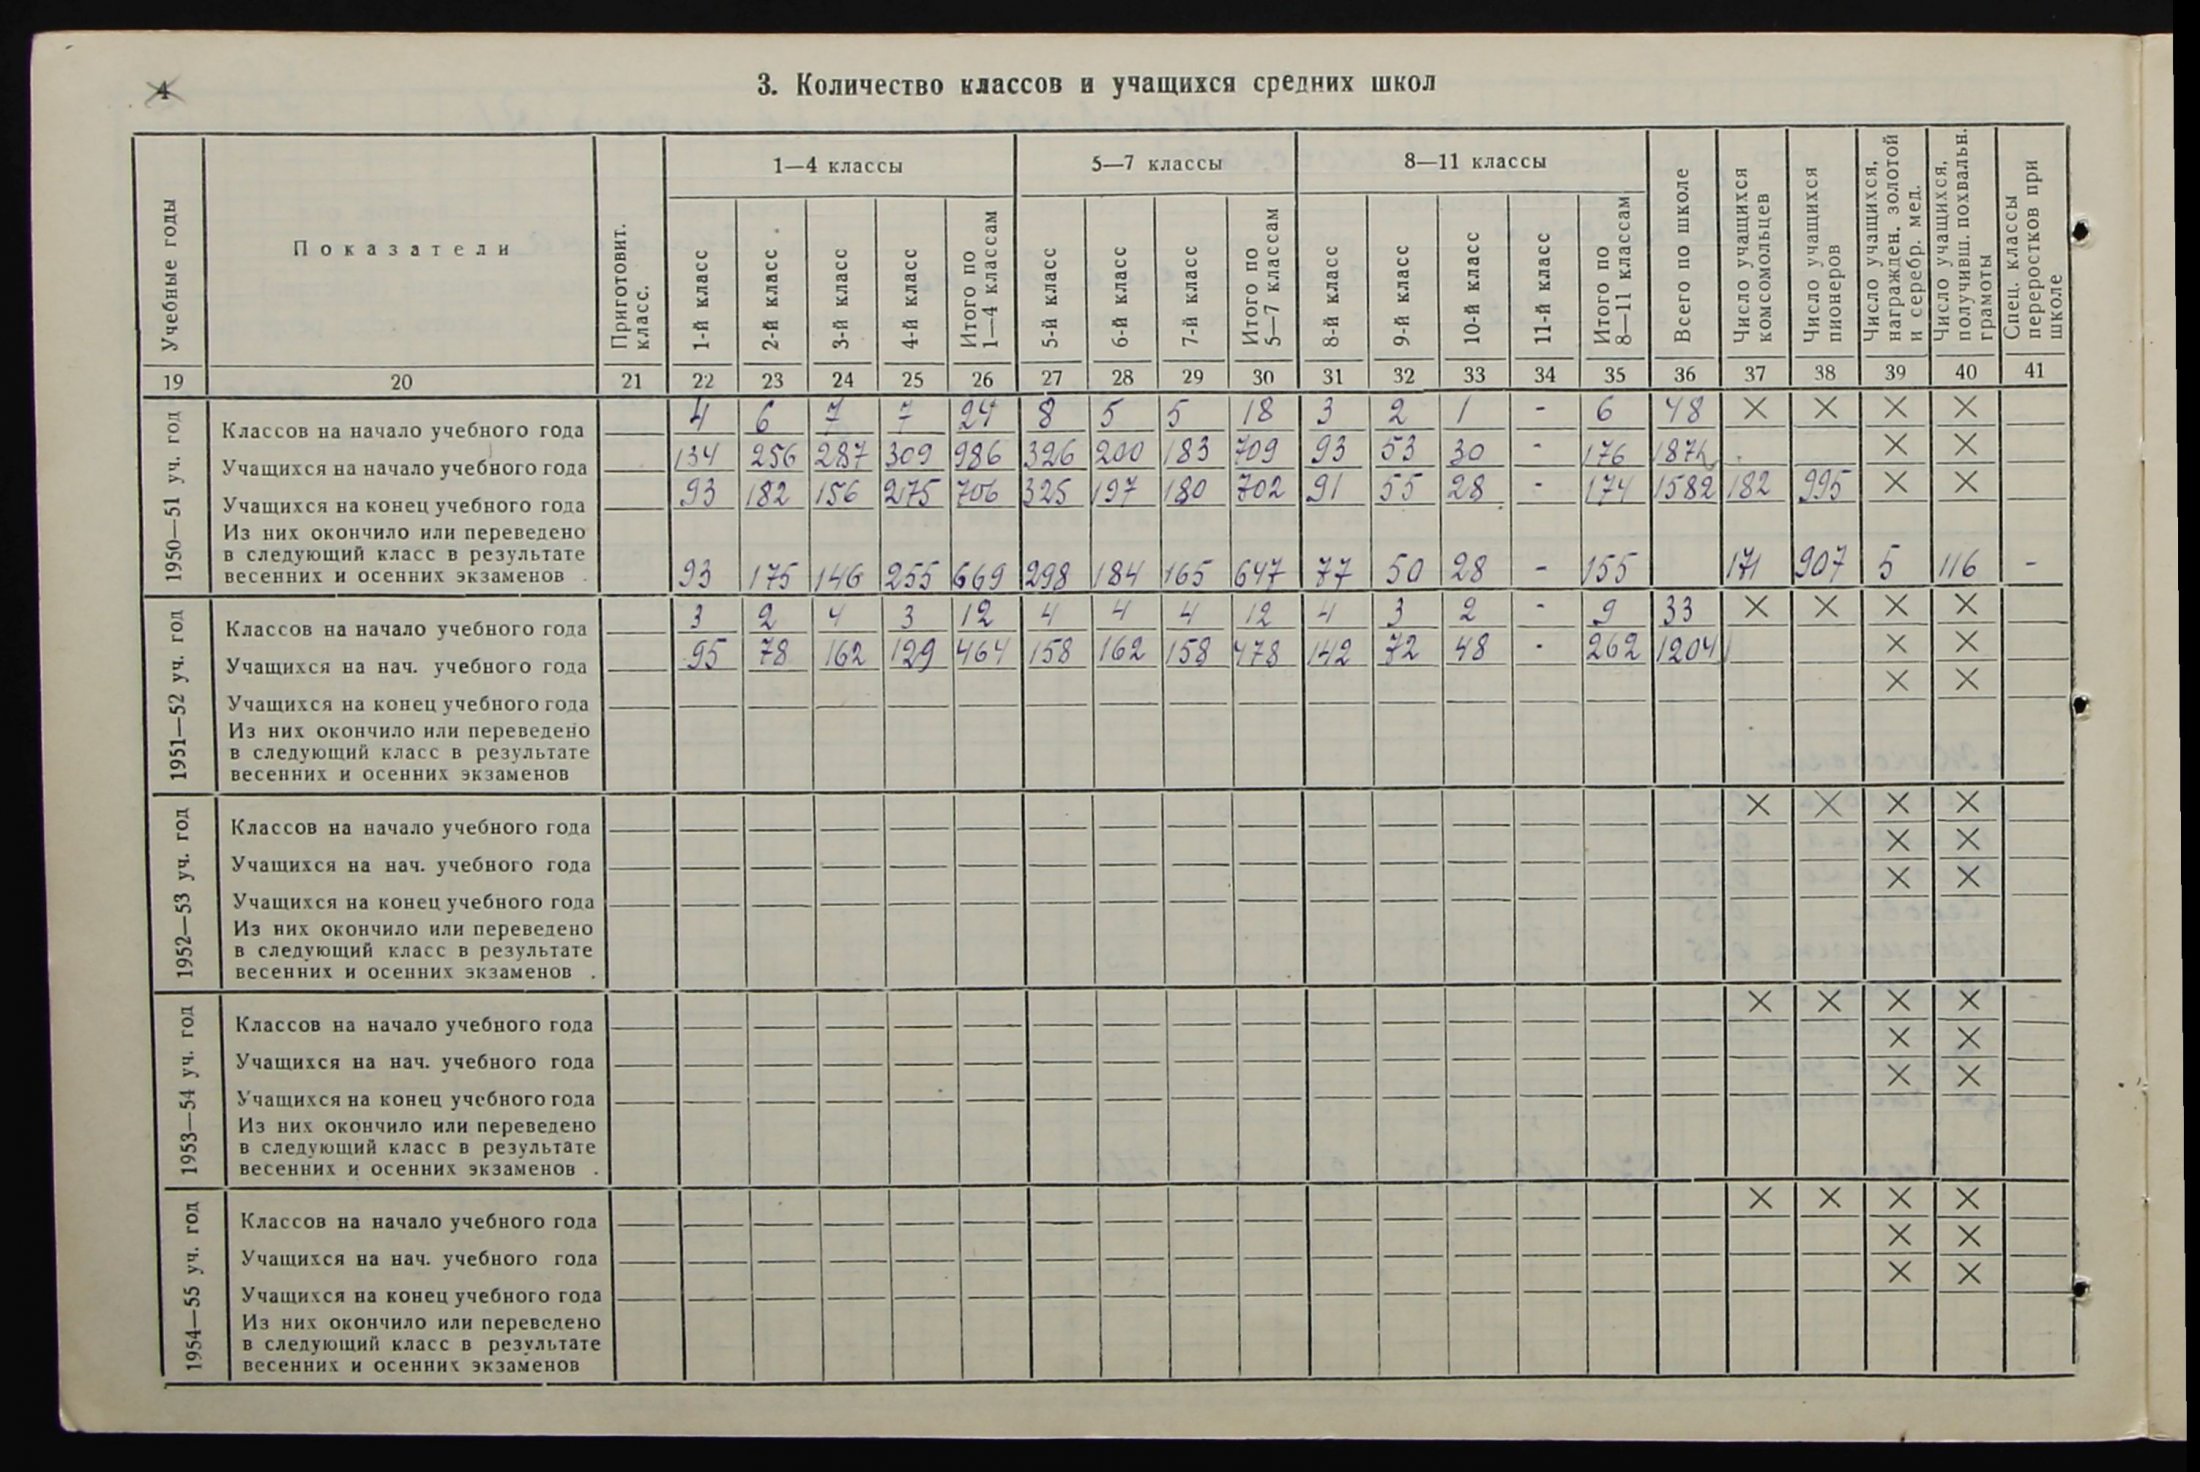 4
3. Количество классов и учащихся средних школ
Учебные годы
Показатели
Приготовит. класс.
1—4 классы
5—7 классы
8—11 классы
1-й класс
2-й класс
3-й класс
4-й класс
Итого по 1—4 классам
5-й класс
6-й класс
7-й класс
Итого по 5—7 классам
8-й класс
9-й класс
10-й класс
11-й класс
Итого по 8—11 классам
Всего по школе
Число учащихся комсомольцев
Число учащихся пионеров
Число учащихся, награжден. золотой и серебр. мед.
Число учащихся, получивш. похвальн. грамоты
Спец. классы переростков при школе
19 20 21 22 23 24 25 26 27 28 29 30 31 32 33 34 35 36 37 38 39 40 41
1950—51 уч. год
Классов на начало учебного года 4 6 7 7 24 8 5 5 18 3 2 1 - 6 48 × × × ×
Учащихся на начало учебного года 134 256 287 309 986 326 200 183 709 93 53 30 - 176 187 × ×
Учащихся на конец учебного года 93 182 156 275 706 325 197 180 702 91 55 28 - 174 1582 182 995 × ×
Из них окончило или переведено
в следующий класс в результате
весенних и осенних экзаменов . 93 175 146 255 669 298 184 165 647 77 50 28 - 155 171 907 5 116 -
1951—52 уч. год
Классов на начало учебного года 3 2 4 3 12 4 4 4 12 4 3 2 - 9 33 × × × ×
Учащихся на нач. учебного года 95 78 162 129 464 158 162 158 478 142 72 48 - 262 1204 × ×
Учащихся на конец учебного года × ×
Из них окончило или переведено
в следующий класс в результате
весенних и осенних экзаменов
1952—53 уч. год
Классов на начало учебного года × × × ×
Учащихся на нач. учебного года × ×
Учащихся на конец учебного года × ×
Из них окончило или переведено
в следующий класс в результате
весенних и осенних экзаменов .
1953—54 уч. год
Классов на начало учебного года × × × ×
Учащихся на нач. учебного года × ×
Учащихся на конец учебного года × ×
Из них окончило или переведено
в следующий класс в результате
весенних и осенних экзаменов .
1954—55 уч. год
Классов на начало учебного года × × × ×
Учащихся на нач. учебного года × ×
Учащихся на конец учебного года × ×
Из них окончило или переведено
в следующий класс в результате
весенних и осенних экзаменов